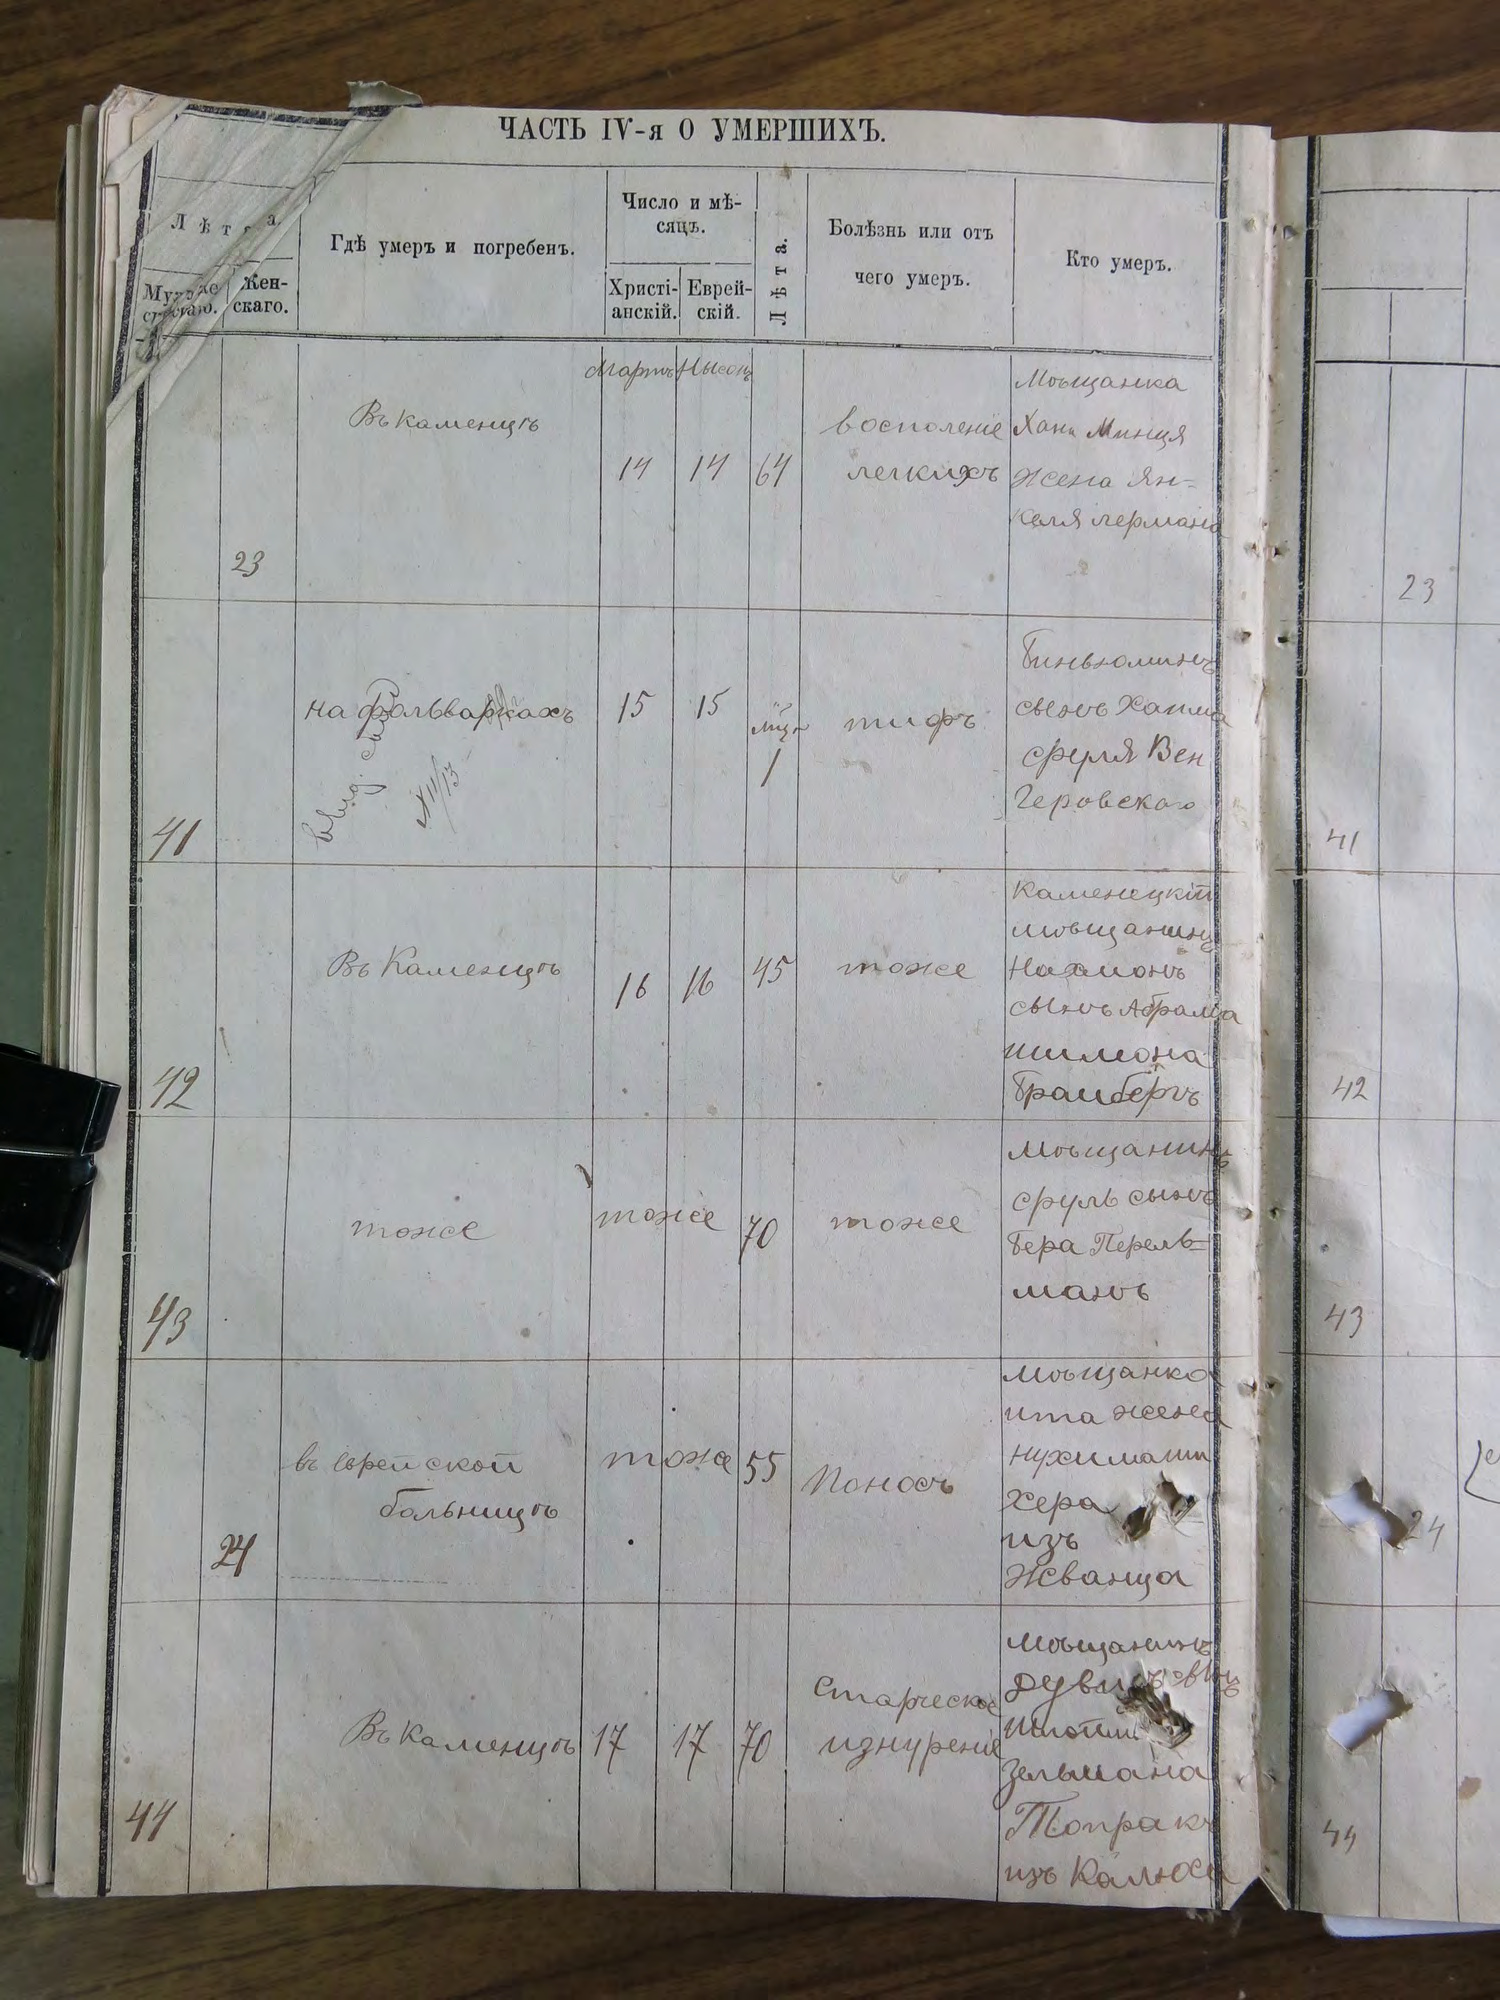 ЧАСТЬ IV-я О УМЕРШИХЪ.
Лѣта
Мужескаго.
Женскаго.
Гдѣ умеръ и погребенъ.
Число и мѣ-
сяцъ.
Христі-
анскій.
Еврей-
скій.
Лѣта.
Болѣзнь или отъ
чего умеръ.
Кто умеръ.
Мартъ Нысонъ
23
Въ Каменцѣ
14
14
64
восполеніе
легкихъ
Мѣщанка
Хана Минця
жена Ян-
келя Лермана
23
41
на фольваркахъ
XII/13
15
15
1
тифъ
Биньюминъ
сынъ Хаима
сруля Вен
геровскаго
41
42
Въ Каменцѣ
16
16
45
тоже
Каменецкій
мѣщанинъ
Нахманъ
сынъ Абрама
шимона
Браиберъ
42
43
тоже
тоже
70
тоже
мѣщанинъ
сруль сынъ
Бера Перель=
манъ
43
24
въ еврейской
больницѣ
тоже
55
Поносъ
мѣщанка
ита жена
Нухима
Хера
изъ
Жванца
24
44
Въ Каменцѣ
17
17
70
Старческое
изнуреніе
мѣщанинъ
Дувидъ сынъ
Зельмана
Топракъ
изъ Калюса
44